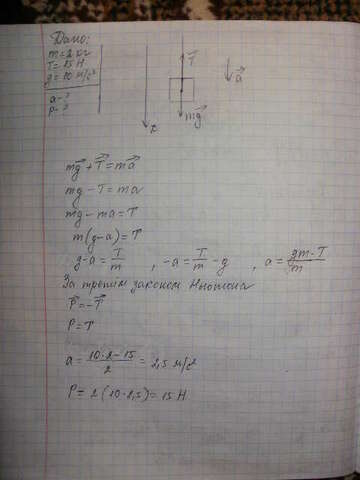 Дано:
m = 2 кг
T = 15 Н
g = 10 м/с²
a - ?
P - ?
T⃗
a⃗
mg⃗
mg⃗ + T⃗ = ma⃗
mg - T = ma
mg - ma = T
m(g-a) = T
g-a = T/m , -a = T/m - g , a = (gm-T)/m
За третім законом Ньютона
P⃗ = -T⃗
P = T
a = (10·2-15)/2 = 2,5 м/с²
P = 2(10-2,5) = 15 Н